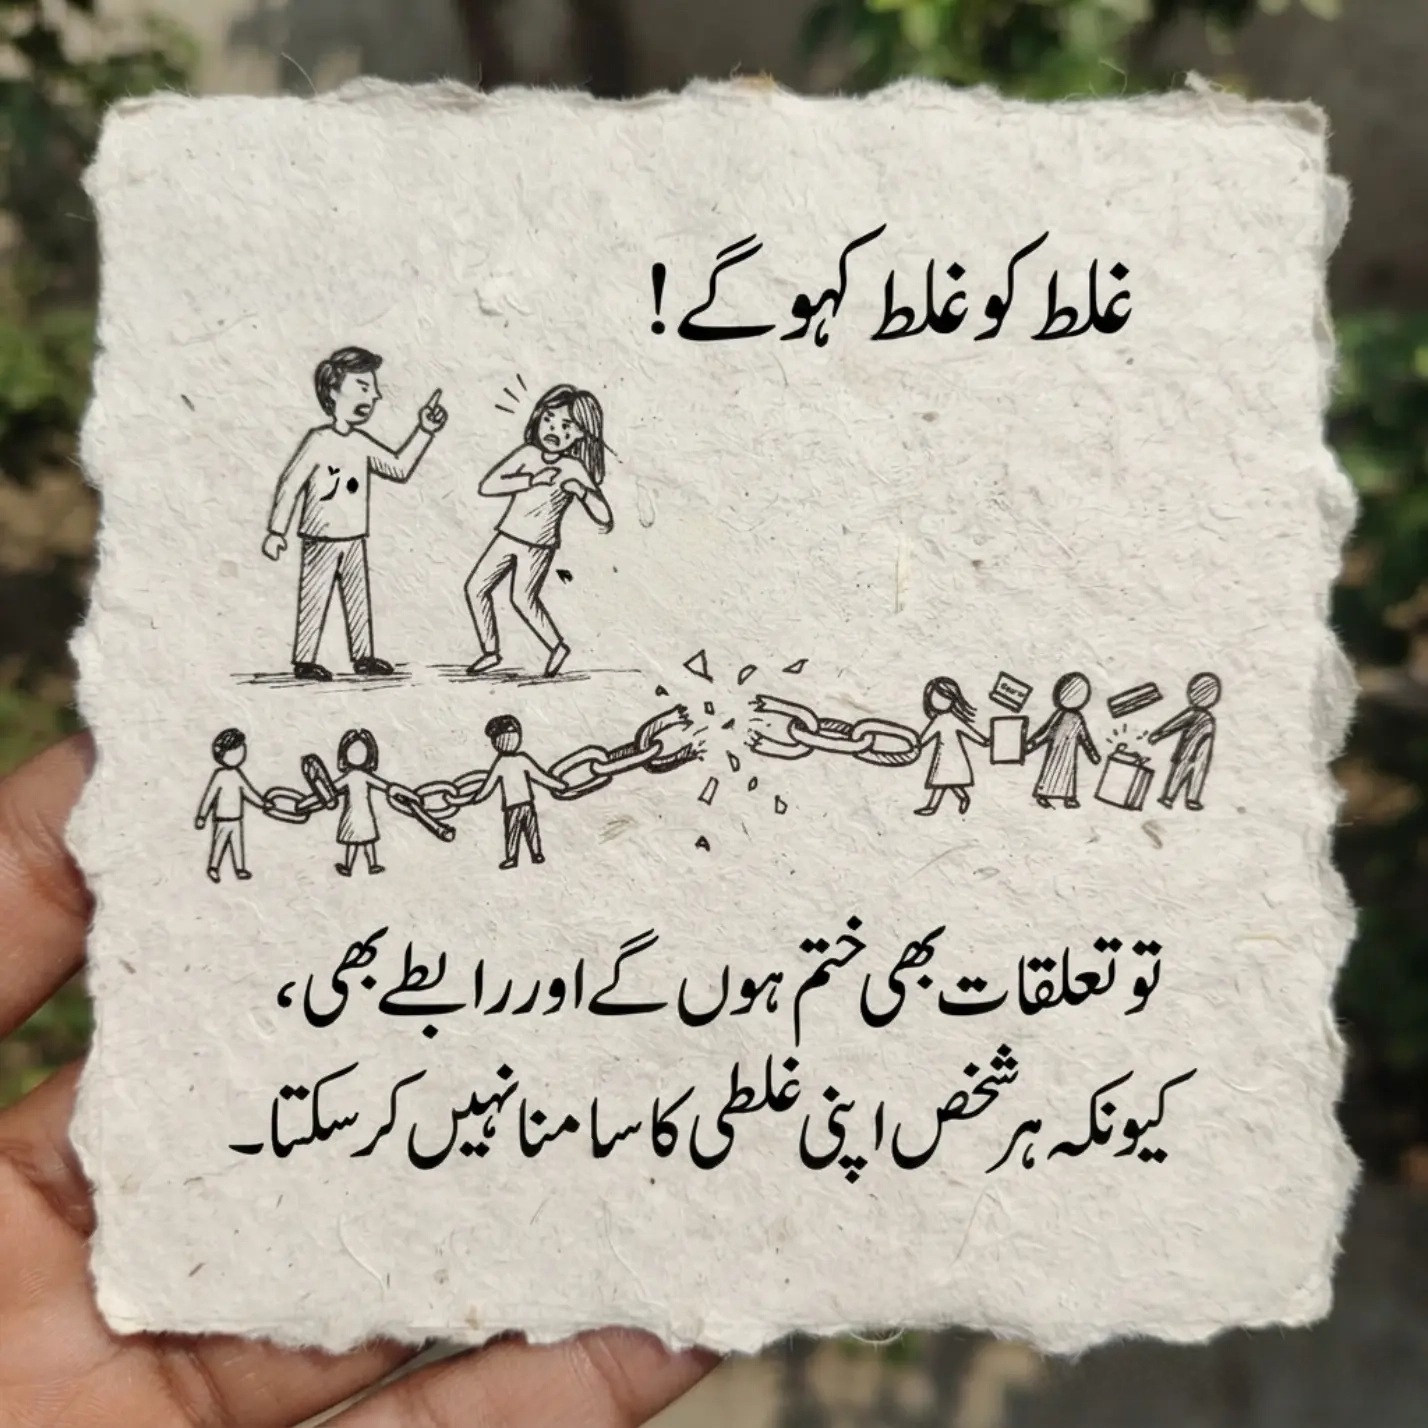 غلط کو غلط کہو گے!
تو تعلقات بھی ختم ہوں گے اور رابطے بھی،
کیونکہ ہر شخص اپنی غلطی کا سامنا نہیں کر سکتا۔